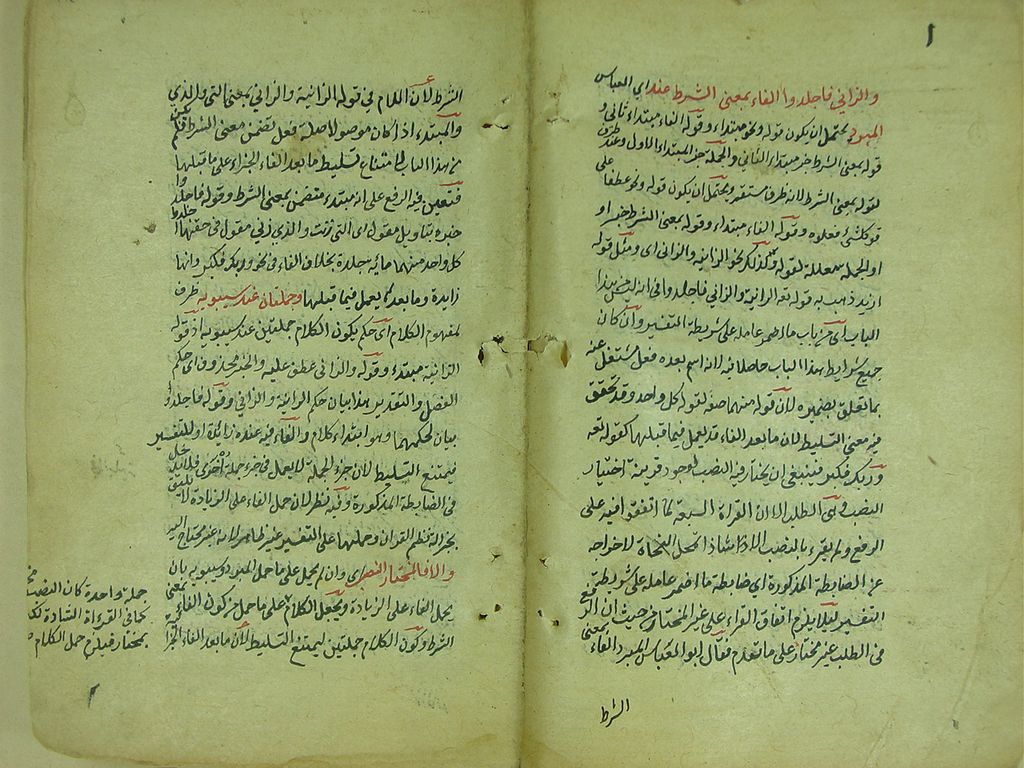 ١
والزاني فاجلدوا الفاء بمعنى الشرط عند ابي العباس
المبرد يحتمل ان يكون قوله ونحو مبتداء وقوله الفاء مبتداء ثاني و
قوله بمعنى الشرط خبر مبتداء الثاني والجملة خبر المبتداء الاول وعند ظرف
لقوله بمعنى الشرط لانه ظرف مستقر ويحتمل ان يكون قوله ونحو عطفا على
قوله كل شيء فعلوه وقوله الفاء مبتداء وقوله بمعنى الشرط خبره او
والجملة معللة لقوله وكذلك نحو الزانية والزاني اى ومثل قوله
ازيد ذهب به قوله تعه الزانية والزاني فاجلدوا فى انه ليس بهذا
الباب اى من باب ما اضمر عامله على شريطة التفسير وان كان
جميع شرايط بهذا الباب حاصلا فيه لانه اسم بعده فعل مشتغل عنه
بما تعلق بضميره لان قوله منهما صفة لقوله كل واحد وقد تحقق
فيه معنى التسليط لان ما بعد الفاء قد يعمل فيما قبلها كقوله تعه
وربك فكبر فينبغي ان يختار فيه النصب لوجود قرينة اختيار
النصب وهى الطلب الا ان القراء السبعة لما اتفقوا فيه على
الرفع ولم يقرء بالنصب الا شاذا تمحل النحاة لاخراجه
عن الضابطة المذكورة اى ضابطة ما اضمر عامله على شريطة
التفسير لئلا يلزم اتفاق القراء على غير المختار من حيث ان الرفع
فى الطلب غير مختار على ما تقدم فقال ابو العباس المبرد الفاء بمعنى
الشرط
الشرط لان اللام فى قوله الزانية والزاني بمعنى التى والذى
والمبتداء اذا كان موصولا صلته فعل يتضمن معنى الشرط فلم يكن
من بهذا الباب لامتناع تسليط ما بعد الفاء الجزاء على ما قبلها
فتعين فيه الرفع على انه مبتداء متضمن بمعنى الشرط وقوله فاجلدوا
خبره بتاويل مقول اى التى زنت والذى زنى مقول فى حقهما اجلدوا
كل واحد منهما مائة جلدة بخلاف الفاء فى نحو وربك فكبر فانها
زايدة وما بعدها يعمل فيما قبلها وجملتان عند سيبويه ظرف
لمفهوم الكلام اى حكم يكون الكلام جملتين عند سيبويه اذ قوله
الزانية مبتداء وقوله والزاني عطف عليه والخبر محذوف اى حكم
الفصل والتقدير بهذا بيان حكم الزانية والزاني وقوله فاجلدوا
بيان لحكمهما وهو ابتداء كلام والفاء فيه عنده زائدة او للتفسير
فيمتنع التسليط لان جزء الجملة لا يعمل فى جزء جملة اخرى فلا يدخل
فى الضابطة المذكورة وفيه نظر لان حمل الفاء على الزيادة لا يليق
بجزالة نظم القران وحملها على التفسير غير ظاهر لانه غير محتاج اليه
والا فالمختار النصب اى وان لم يحمل على ما حمل المبرد وسيبويه بان
يحمل الفاء على الزيادة ويجعل الكلام على ما حمل من كون الفاء بمعنى
الشرط وكون الكلام جملتين ليمتنع التسليط لان ما بعد الفاء الجزاء
جملة واحدة كان النصب
كما فى القراءة الشاذة
بمختار فيلزم حمل الكلام